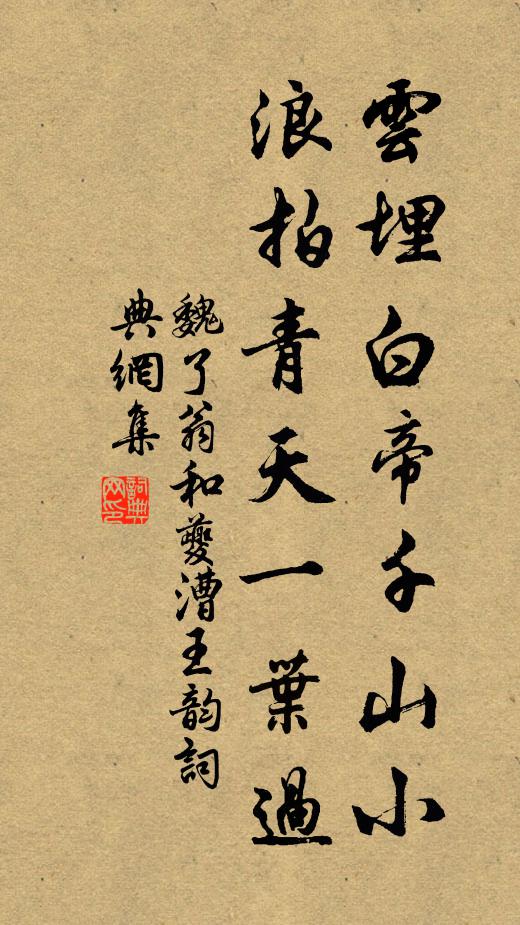 雲埋白帝千山小
浪拍青天一葉過
魏了翁和夔漕王韵詞
典網集
詞典
网印